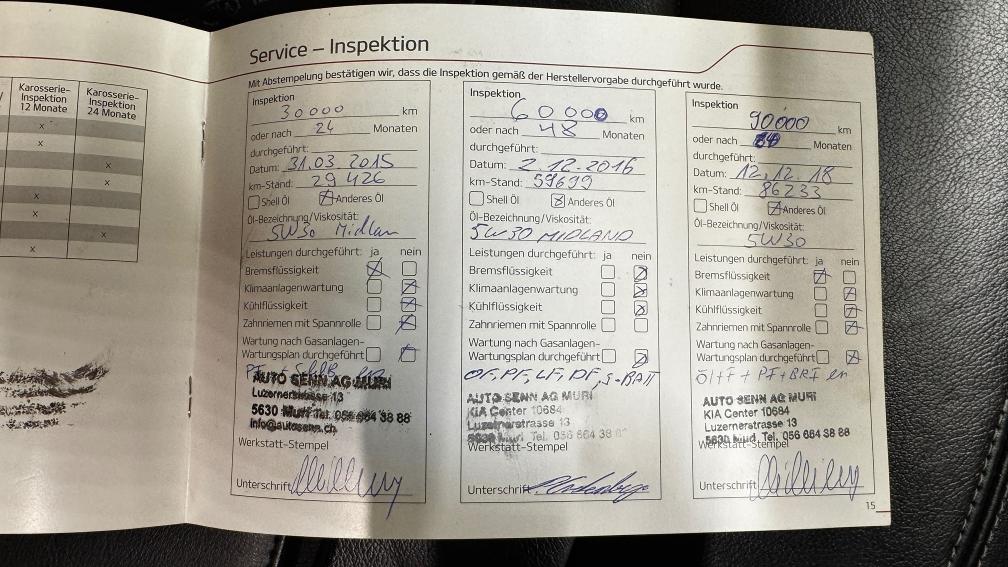 Karosserie-
Inspektion
12 Monate
Karosserie-
Inspektion
24 Monate
x
x
x
x
x
x
x
x
Service – Inspektion
Mit Abstempelung bestätigen wir, dass die Inspektion gemäß der Herstellervorgabe durchgeführt wurde.
Inspektion
30000 km
oder nach 24 Monaten
durchgeführt:
Datum: 31.03.2015
km-Stand: 29 426
Shell Öl Anderes Öl
Öl-Bezeichnung/Viskosität:
5W30 Midlan
Leistungen durchgeführt: ja nein
Bremsflüssigkeit
Klimaanlagenwartung
Kühlflüssigkeit
Zahnriemen mit Spannrolle
Wartung nach Gasanlagen-
Wartungsplan durchgeführt
AUTO SENN AG MURI
Luzernerstrasse 13
5630 Muri Tel. 056 664 38 88
info@autosenn.ch
Werkstatt-Stempel
Unterschrift
Inspektion
60000 km
oder nach 48 Monaten
durchgeführt:
Datum: 2.12.2016
km-Stand: 59699
Shell Öl Anderes Öl
Öl-Bezeichnung/Viskosität:
5W30 MIDLAND
Leistungen durchgeführt: ja nein
Bremsflüssigkeit
Klimaanlagenwartung
Kühlflüssigkeit
Zahnriemen mit Spannrolle
Wartung nach Gasanlagen-
Wartungsplan durchgeführt
ÖF, PF, LF, DF, S-BATT
AUTO SENN AG MURI
KIA Center 10684
Luzernerstrasse 13
5630 Muri Tel. 056 664 38
Werkstatt-Stempel
Unterschrift
Inspektion
90000 km
oder nach Monaten
durchgeführt:
Datum: 12.12.18
km-Stand: 86233
Shell Öl Anderes Öl
Öl-Bezeichnung/Viskosität:
5W30
Leistungen durchgeführt: ja nein
Bremsflüssigkeit
Klimaanlagenwartung
Kühlflüssigkeit
Zahnriemen mit Spannrolle
Wartung nach Gasanlagen-
Wartungsplan durchgeführt
Öl+F + PF + BRF er
AUTO SENN AG MURI
KIA Center 10684
Luzernerstrasse 13
5630 Muri Tel. 056 664 38 88
Werkstatt-Stempel
Unterschrift
15